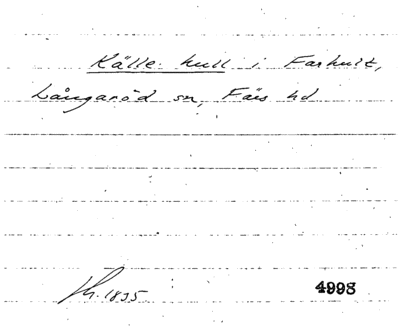 Källe hull i Farhult,
Långaröd sn, Färs hd
1895
4998